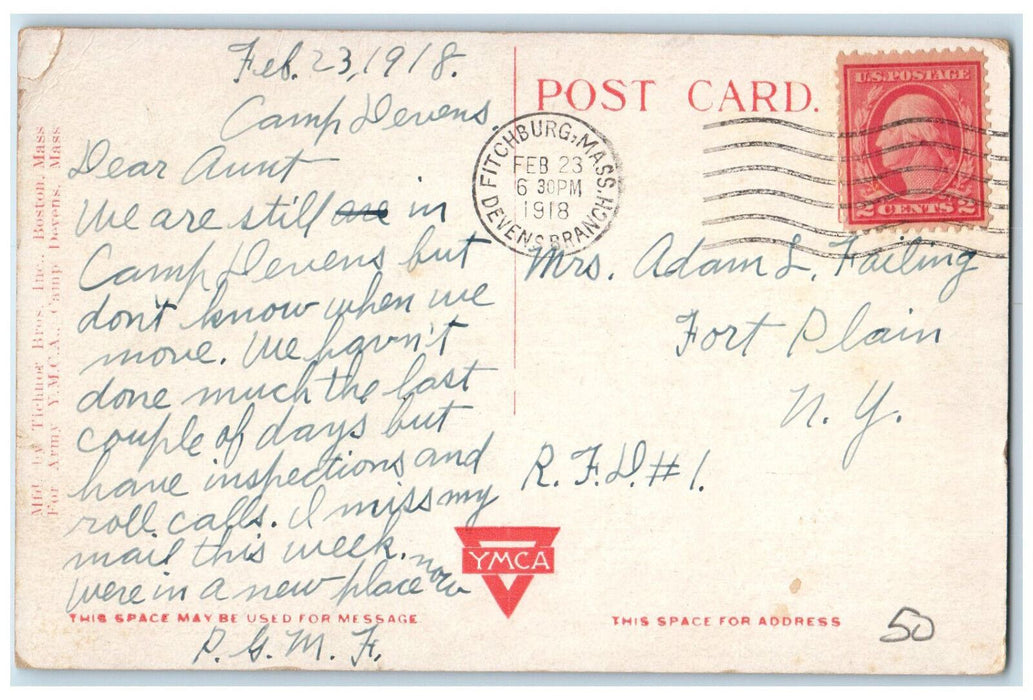 Feb. 23, 1918.
Camp Devens.
Dear Aunt
We are still are in
Camp Devens but
don't know when we
move. We havn't
done much the last
couple of days but
have inspections and
roll calls. I miss my
mail this week.
Were in a new place now
P. G. M. F.
THIS SPACE MAY BE USED FOR MESSAGE
Mfd. by Tichnor Bros. Inc., Boston, Mass
For Army Y.M.C.A., Camp Devens, Mass
POST CARD.
FITCHBURG, MASS.
FEB 23
6 30PM
1918
DEVENS BRANCH.
U.S. POSTAGE
2 CENTS 2
Mrs. Adam L. Failing
Fort Plain
N. Y.
R. F. D. #1.
YMCA
THIS SPACE FOR ADDRESS
50